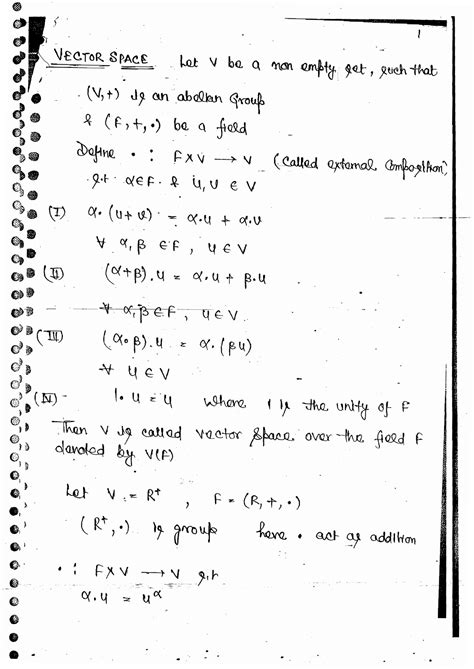 1
VECTOR SPACE Let V be a non empty set, such that
(V,+) is an abelian Group
& (F,+,•) be a field
Define • : F×V → V (called external composition)
s.t α∈F & u,v ∈ V
(I) α•(u+v) = α•u + α•v
∀ α,β ∈ F, u∈V
(II) (α+β)•u = α•u + β•u
∀ α,β∈F, u∈V
(III) (α•β)•u = α•(βu)
∀ u∈V
(IV) 1•u = u where 1 is the unity of F
Then V is called vector space over the field F
denoted by V(F)
Let V = R⁺, F = (R,+,•)
(R⁺,•) is group here • act as addition
• : F×V → V s.t
α•u = u^α